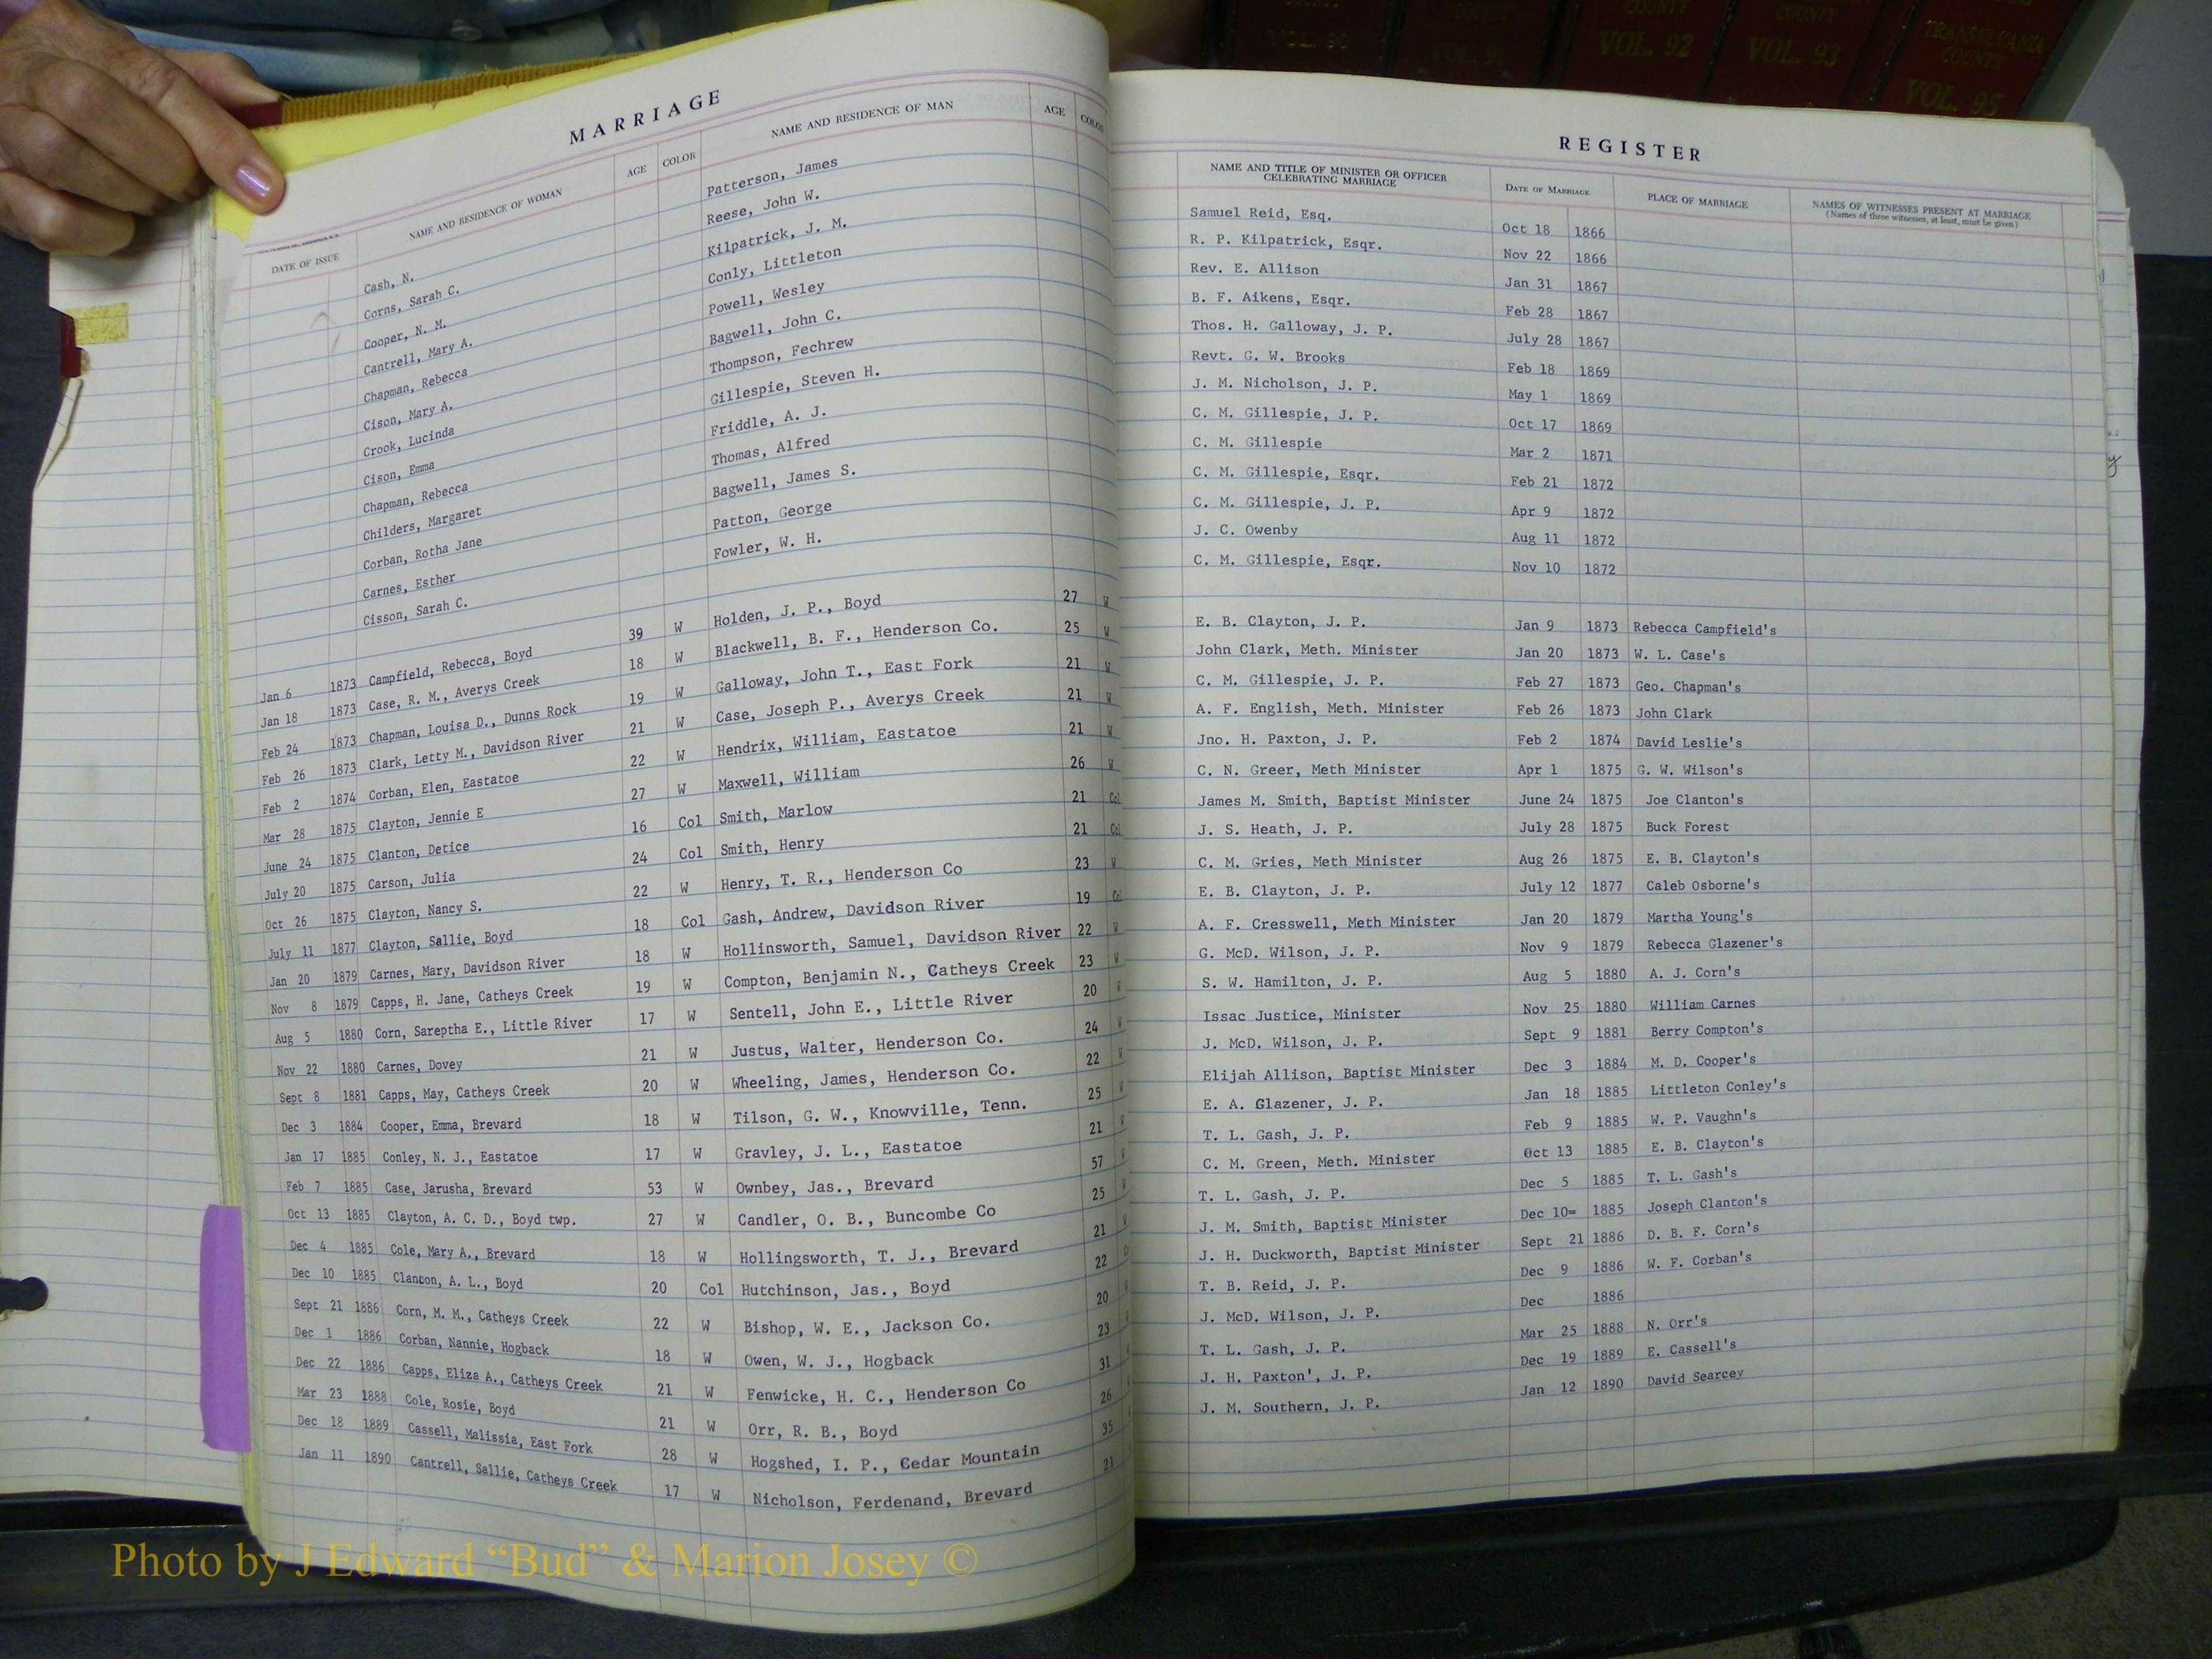 COUNTY
VOL. 92
COUNTY
VOL. 93
TRANSYLVANIA
COUNTY
VOL. 95
MARRIAGE
DATE OF ISSUE NAME AND RESIDENCE OF WOMAN AGE COLOR NAME AND RESIDENCE OF MAN AGE COLOR
Cash, N. Patterson, James
Corns, Sarah C. Reese, John W.
Cooper, N. M. Kilpatrick, J. M.
Cantrell, Mary A. Conly, Littleton
Chapman, Rebecca Powell, Wesley
Cison, Mary A. Bagwell, John C.
Crook, Lucinda Thompson, Fechrew
Cison, Emma Gillespie, Steven H.
Chapman, Rebecca Friddle, A. J.
Childers, Margaret Thomas, Alfred
Corban, Rotha Jane Bagwell, James S.
Carnes, Esther Patton, George
Cisson, Sarah C. Fowler, W. H.
Jan 6 1873 Campfield, Rebecca, Boyd 39 W Holden, J. P., Boyd 27 W
Jan 18 1873 Case, R. M., Averys Creek 18 W Blackwell, B. F., Henderson Co. 25 W
Feb 24 1873 Chapman, Louisa D., Dunns Rock 19 W Galloway, John T., East Fork 21 W
Feb 26 1873 Clark, Letty M., Davidson River 21 W Case, Joseph P., Averys Creek 21 W
Feb 2 1874 Corban, Elen, Eastatoe 22 W Hendrix, William, Eastatoe 21 W
Mar 28 1875 Clayton, Jennie E 27 W Maxwell, William 26 W
June 24 1875 Clanton, Detice 16 Col Smith, Marlow 21 Col
July 20 1875 Carson, Julia 24 Col Smith, Henry 21 Col
Oct 26 1875 Clayton, Nancy S. 22 W Henry, T. R., Henderson Co 23 W
July 11 1877 Clayton, Sallie, Boyd 18 Col Gash, Andrew, Davidson River 19 Col
Jan 20 1879 Carnes, Mary, Davidson River 18 W Hollinsworth, Samuel, Davidson River 22 W
Nov 8 1879 Capps, H. Jane, Catheys Creek 19 W Compton, Benjamin N., Catheys Creek 23 W
Aug 5 1880 Corn, Sareptha E., Little River 17 W Sentell, John E., Little River 20 W
Nov 22 1880 Carnes, Dovey 21 W Justus, Walter, Henderson Co. 24 W
Sept 8 1881 Capps, May, Catheys Creek 20 W Wheeling, James, Henderson Co. 22 W
Dec 3 1884 Cooper, Emma, Brevard 18 W Tilson, G. W., Knowville, Tenn. 25
Jan 17 1885 Conley, N. J., Eastatoe 17 W Gravley, J. L., Eastatoe 21
Feb 7 1885 Case, Jarusha, Brevard 53 W Ownbey, Jas., Brevard 57
Oct 13 1885 Clayton, A. C. D., Boyd twp. 27 W Candler, O. B., Buncombe Co 25
Dec 4 1885 Cole, Mary A., Brevard 18 W Hollingsworth, T. J., Brevard 21
Dec 10 1885 Clanton, A. L., Boyd 20 Col Hutchinson, Jas., Boyd 22
Sept 21 1886 Corn, M. M., Catheys Creek 22 W Bishop, W. E., Jackson Co. 20
Dec 1 1886 Corban, Nannie, Hogback 18 W Owen, W. J., Hogback 23
Dec 22 1886 Capps, Eliza A., Catheys Creek 21 W Fenwicke, H. C., Henderson Co 31
Mar 23 1888 Cole, Rosie, Boyd 21 W Orr, R. B., Boyd 26
Dec 18 1889 Cassell, Malissia, East Fork 28 W Hogshed, I. P., Cedar Mountain 35
Jan 11 1890 Cantrell, Sallie, Catheys Creek 17 W Nicholson, Ferdenand, Brevard 21
REGISTER
NAME AND TITLE OF MINISTER OR OFFICER CELEBRATING MARRIAGE DATE OF MARRIAGE PLACE OF MARRIAGE NAMES OF WITNESSES PRESENT AT MARRIAGE
(Names of three witnesses, at least, must be given)
Samuel Reid, Esq. Oct 18 1866
R. P. Kilpatrick, Esqr. Nov 22 1866
Rev. E. Allison Jan 31 1867
B. F. Aikens, Esqr. Feb 28 1867
Thos. H. Galloway, J. P. July 28 1867
Revt. G. W. Brooks Feb 18 1869
J. M. Nicholson, J. P. May 1 1869
C. M. Gillespie, J. P. Oct 17 1869
C. M. Gillespie Mar 2 1871
C. M. Gillespie, Esqr. Feb 21 1872
C. M. Gillespie, J. P. Apr 9 1872
J. C. Owenby Aug 11 1872
C. M. Gillespie, Esqr. Nov 10 1872
E. B. Clayton, J. P. Jan 9 1873 Rebecca Campfield's
John Clark, Meth. Minister Jan 20 1873 W. L. Case's
C. M. Gillespie, J. P. Feb 27 1873 Geo. Chapman's
A. F. English, Meth. Minister Feb 26 1873 John Clark
Jno. H. Paxton, J. P. Feb 2 1874 David Leslie's
C. N. Greer, Meth Minister Apr 1 1875 G. W. Wilson's
James M. Smith, Baptist Minister June 24 1875 Joe Clanton's
J. S. Heath, J. P. July 28 1875 Buck Forest
C. M. Gries, Meth Minister Aug 26 1875 E. B. Clayton's
E. B. Clayton, J. P. July 12 1877 Caleb Osborne's
A. F. Cresswell, Meth Minister Jan 20 1879 Martha Young's
G. McD. Wilson, J. P. Nov 9 1879 Rebecca Glazener's
S. W. Hamilton, J. P. Aug 5 1880 A. J. Corn's
Issac Justice, Minister Nov 25 1880 William Carnes
J. McD. Wilson, J. P. Sept 9 1881 Berry Compton's
Elijah Allison, Baptist Minister Dec 3 1884 M. D. Cooper's
E. A. Glazener, J. P. Jan 18 1885 Littleton Conley's
T. L. Gash, J. P. Feb 9 1885 W. P. Vaughn's
C. M. Green, Meth. Minister Oct 13 1885 E. B. Clayton's
T. L. Gash, J. P. Dec 5 1885 T. L. Gash's
J. M. Smith, Baptist Minister Dec 10= 1885 Joseph Clanton's
J. H. Duckworth, Baptist Minister Sept 21 1886 D. B. F. Corn's
T. B. Reid, J. P. Dec 9 1886 W. F. Corban's
J. McD. Wilson, J. P. Dec 1886
T. L. Gash, J. P. Mar 25 1888 N. Orr's
J. H. Paxton', J. P. Dec 19 1889 E. Cassell's
J. M. Southern, J. P. Jan 12 1890 David Searcey
Photo by J Edward “Bud” & Marion Josey ©